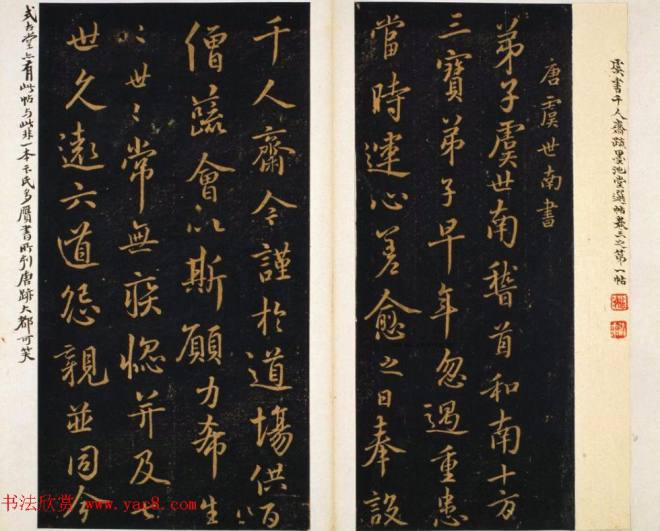 虞書千人齋疏墨池堂選帖卷三之第一帖
唐虞世南書
弟子虞世南稽首和南十方
三寶弟子早年忽遇重患
當時運心差愈之日奉設
千人齋今謹於道場供百
僧蔬會以斯願力希生
〻世〻常無疾惱并及七
世久遠六道怨親並同今
式古堂亦有此帖与此非一本卞氏多贋書所列唐跡大都可笑
书法欣赏 www.yac8.com